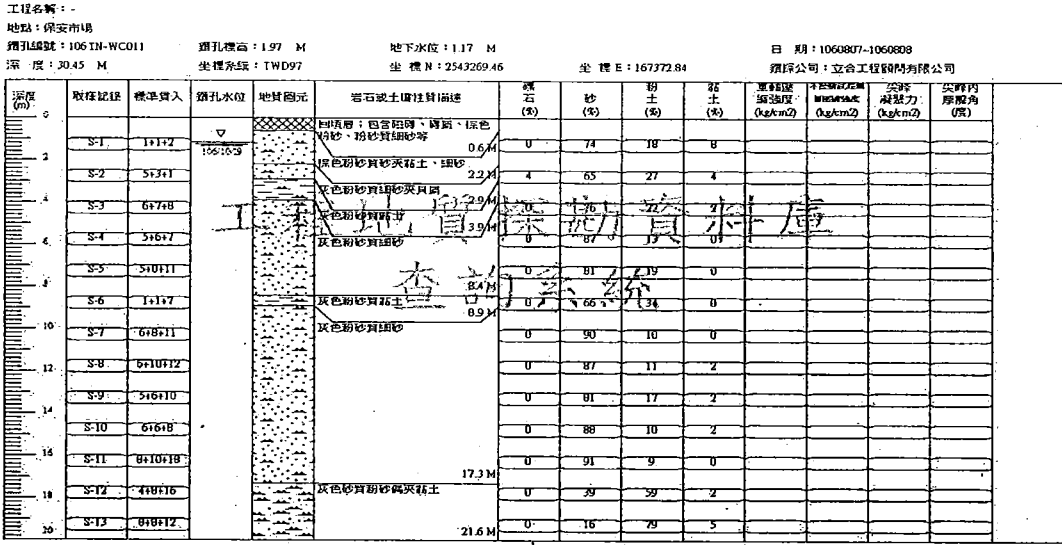 工程名稱：-
地點：保安市場
鑽孔編號：106TN-WC011 鑽孔標高：1.97 M 地下水位：1.17 M 日 期：1060807~1060808
深 度：30.45 M 坐標系統：TWD97 坐 標 N：2543269.46 坐 標 E：167372.84 鑽探公司：立合工程顧問有限公司
深度(m) 取樣記錄 標準貫入 鑽孔水位 地質圖元 岩石或土壤性質描述 礫石(%) 砂(%) 粉土(%) 黏土(%) 單軸壓縮強度(kg/cm2) (kg/cm2) 尖峰凝聚力(kg/cm2) 尖峰內摩擦角(度)
0 回填層；包含混凝、磚屑、棕色
粉砂、粉砂質細砂等
0.6 M
S-1 1+1+2 106/10/29 0 74 18 8
2 棕色粉砂質砂夾黏土、細砂
2.2 M
S-2 5+3+1 4 65 27 4
灰色粉砂質細砂夾貝屑
2.9 M
4 S-3 6+7+8 灰色粉砂質黏土 0 76 22 2
3.9 M
工程地質探勘資料庫
6 S-4 5+6+7 灰色粉砂質細砂 0 87 13 0
S-5 5+8+11 0 81 19 0
8 8.4 M
查詢系統
S-6 1+1+7 灰色粉砂質黏土 0 66 34 0
8.9 M
10 S-7 6+8+11 灰色粉砂質細砂 0 90 10 0
12 S-8 6+10+12 0 87 11 2
S-9 5+6+10 0 81 17 2
14
S-10 6+6+8 0 88 10 2
16 S-11 8+10+18 0 91 9 0
17.3 M
18 S-12 4+8+16 灰色砂質粉砂偶夾黏土 0 39 59 2
20 S-13 8+8+12 0 16 79 5
21.6 M